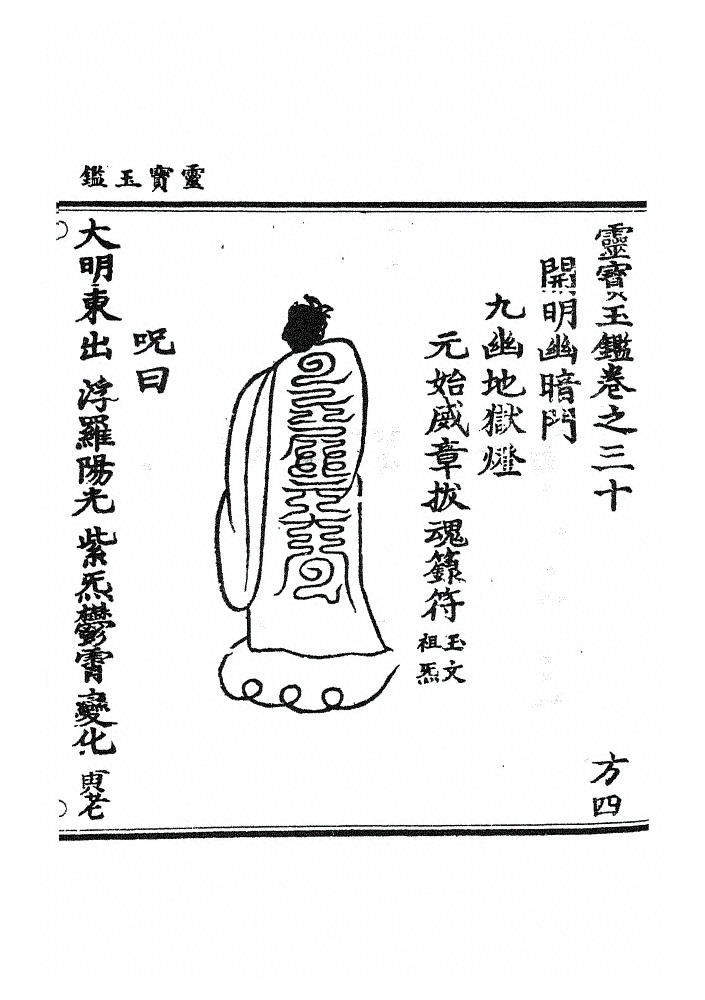 靈寶玉鑑
靈寶玉鑑卷之三十 方四
開明幽暗門
九幽地獄燈
元始威章拔魂籙符 玉文祖炁
呪曰
大明東出 浮羅陽光 紫炁鬱霄 變化